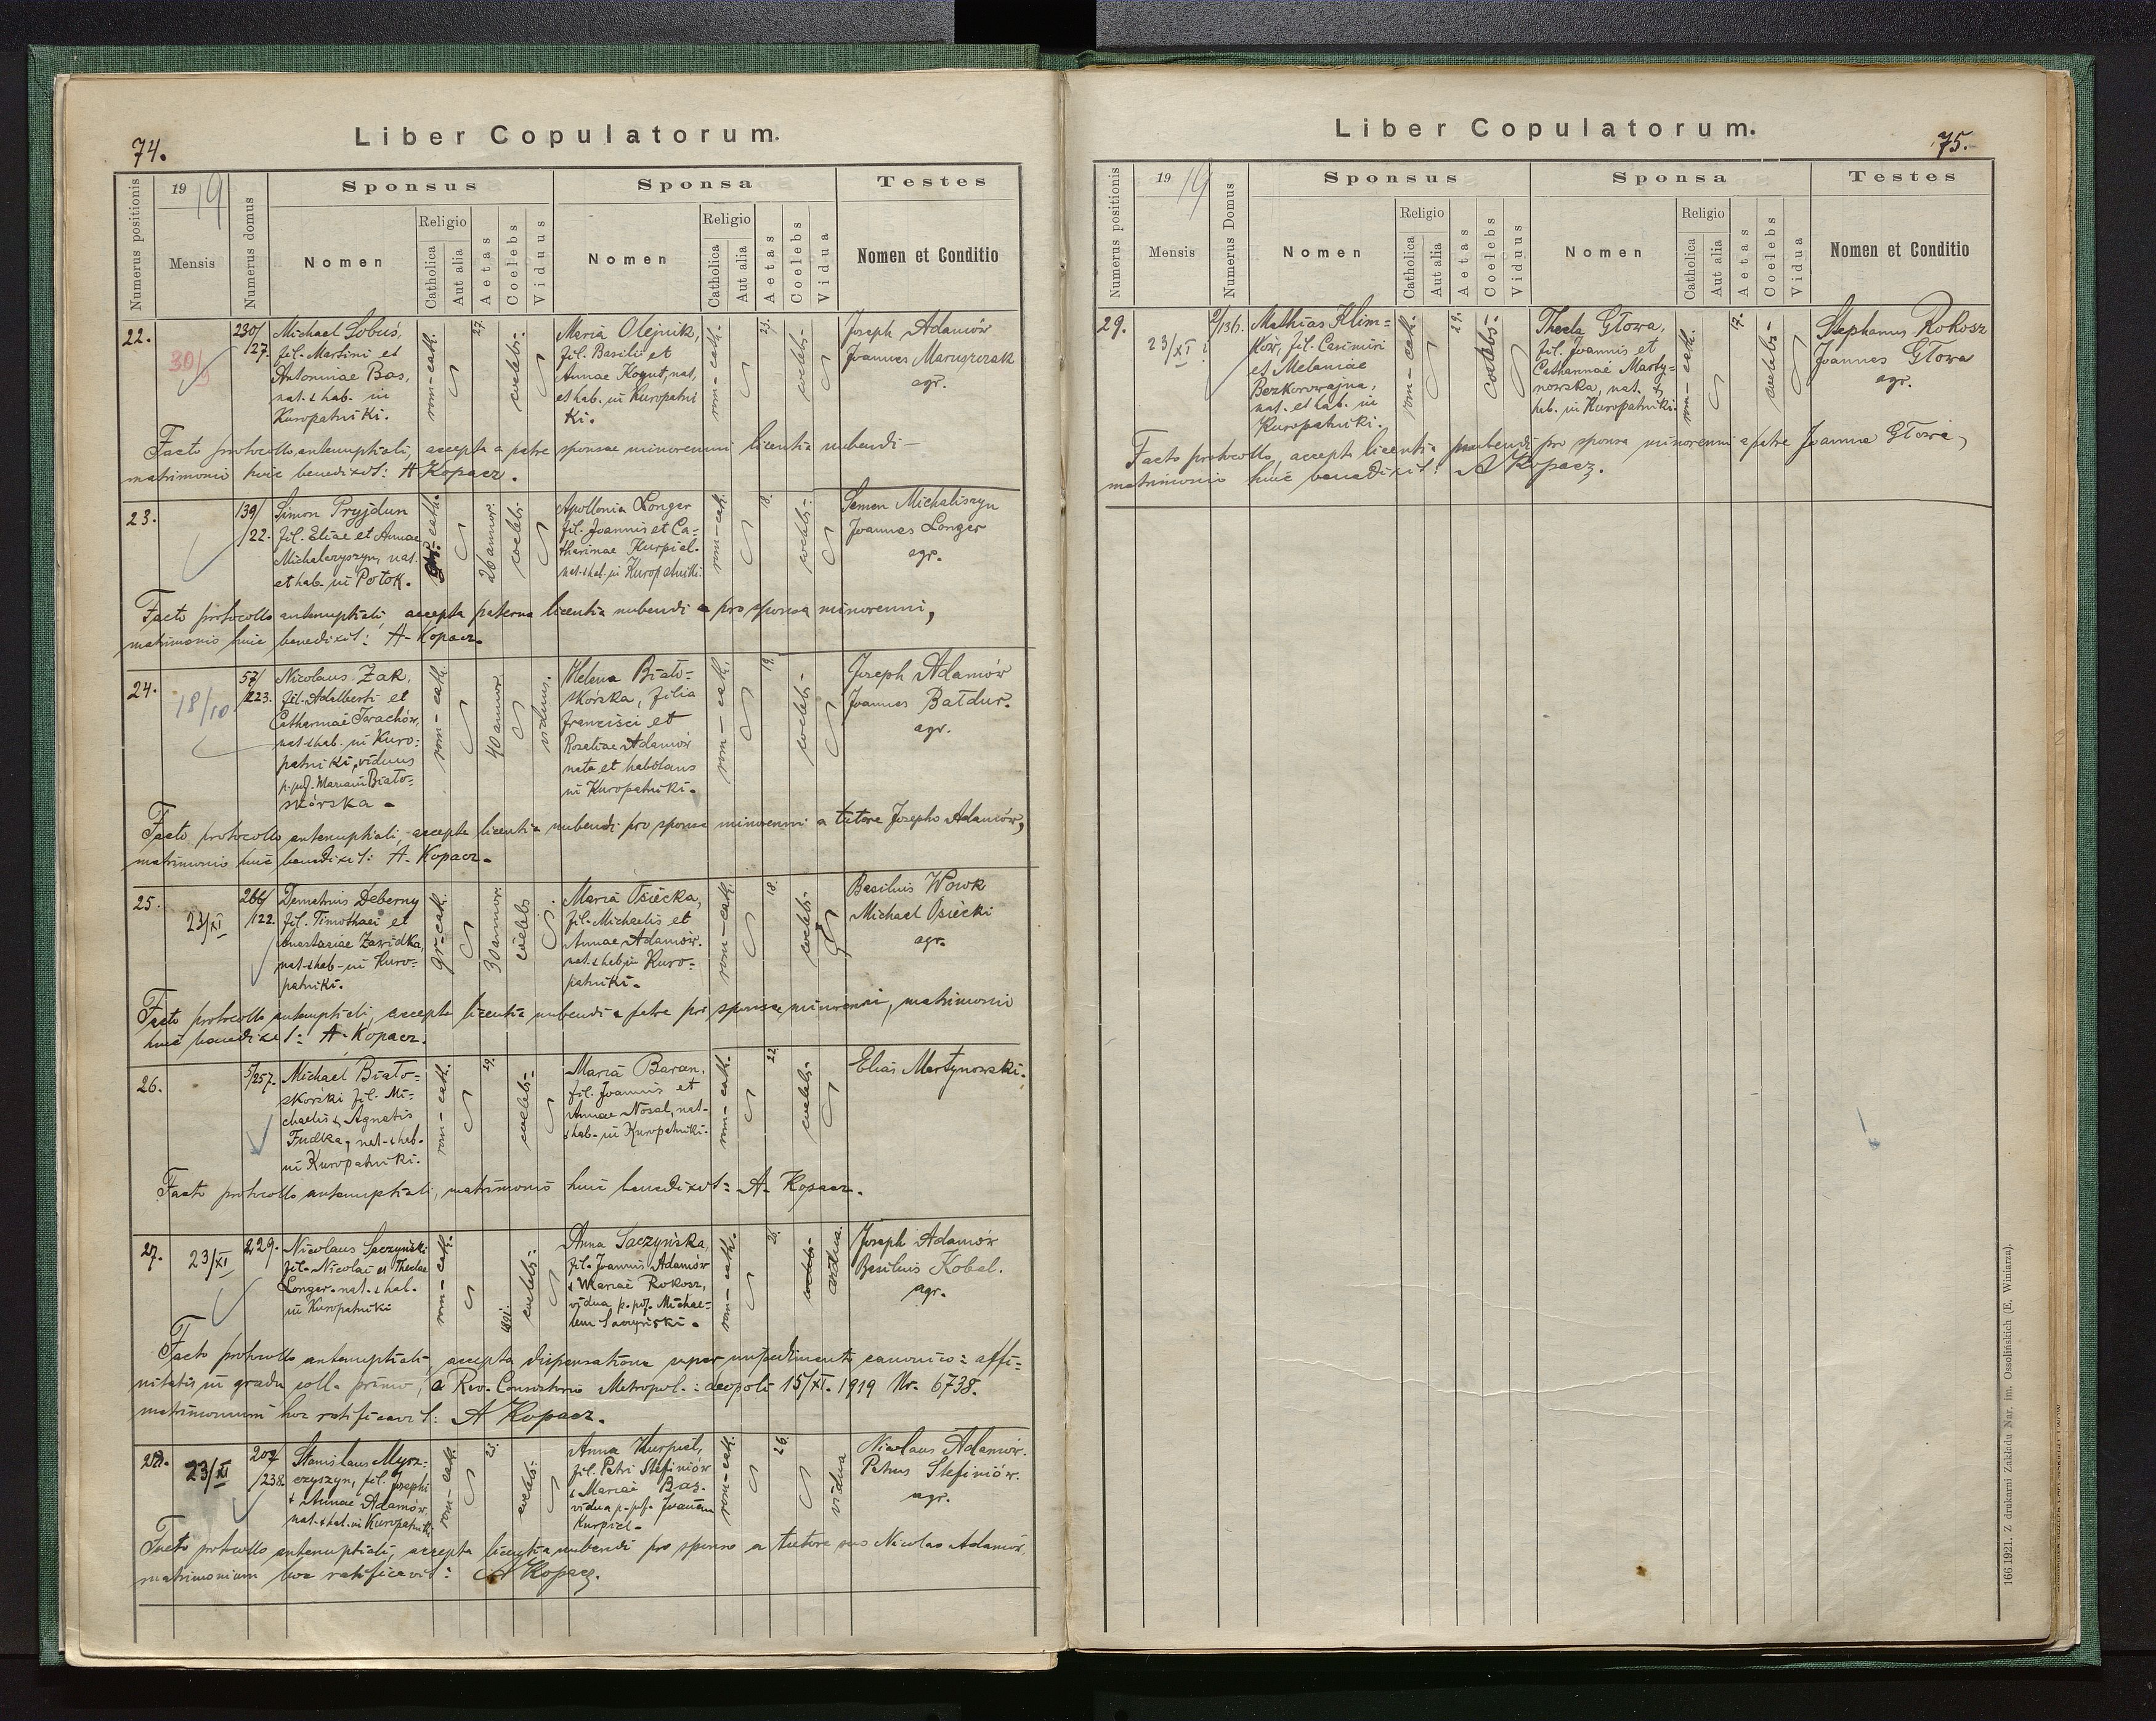 74.
Liber Copulatorum.
Numerus positionis
1919
Mensis
Numerus domus
Sponsus
Nomen
Religio
Catholica
Aut alia
Aetas
Coelebs
Viduus
Sponsa
Nomen
Religio
Catholica
Aut alia
Aetas
Coelebs
Vidua
Testes
Nomen et Conditio
22.
30/9
230/
127.
Michael Sobuś,
fil. Martini et
Antoninae Bas,
nat. & hab. in
Kuropatniki.
rom-cath.
27.
coelebs:
Maria Olejnik,
fil. Basilii et
Annae Kogut, nat.
et hab. in Kuropatni
ki.
rom-cath.
23.
coelebs-
Joseph Adamów
Joannes Maruszczak
agr.
Facto protocollo antenuptiali, accepta a patre sponsae minorenni licentia nubendi-
matrimonio huic benedixit: A Kopacz.
23.
139/
122.
Simon Pryjdun
fil. Eliae et Annae
Michalczyszyn, nat.
et hab. in Potok.
gr.-cath.
26 annor.
coelebs:
Apollonia Longer
fil. Joannis et Ca-
tharinae Kurpiel.
nat. & hab. in Kuropatniki.
rom-cath.
18.
coelebs-
Semen Michaliszyn
Joannes Longer
agr.
Facto protocollo antenuptiali, accepta paterna licentia nubendi a pro sponsa minorenni,
matrimonio huic benedixit: A. Kopacz.
24.
18/10
57/
223.
Nicolaus Żak,
fil. Adalberti et
Catharinae Iwachów,
nat & hab. in Kuro-
patniki, viduus
p. pof. Mariam Biało-
skórska -
rom-cath.
40 annor.
viduus.
Helena Biało-
skórska, filia
Francisci et
Rosaliae Adamów
nata et habitans
in Kuropatniki.
rom-cath.
19.
coelebs-
Joseph Adamów
Joannes Bałdur.
agr.
Facto protocollo antenuptiali, accepta licentia nubendi pro sponsa minorenni a tutore Josepho Adamów,
matrimonio huic benedixit: A. Kopacz.
25.
23/XI
266/
122.
Demetrius Deberny
fil. Timothaei et
Anastasiae Zawidka,
nat. & hab. in Kuro-
patniki.
gr-cath.
30 annor.
coelebs
Maria Osiecka,
fil. Michaelis et
Annae Adamów.
nat. & hab. in Kuro-
patniki.
rom-cath.
18.
coelebs-
Basilius Wowk
Michael Osiecki
agr.
Facto protocollo antenuptiali, accepta licentia nubendi a patre pro sponsa minorenni, matrimonio
huic benedixit: A. Kopacz.
26.
5/257.
Michael Biało-
skorski fil. Mi-
chaelis & Agnetis
Fudka, nat. & hab.
in Kuropatniki.
rom-cath.
29.
coelebs-
Maria Baran,
fil. Joannis et
Annae Nosal, nat-
& hab. in Kuropatniki.
rom-cath.
22.
coelebs-
Elias Martynowski.
Facto protocollo antenuptiali, matrimonio huic benedixit: A. Kopacz.
27.
23/XI
229.
Nicolaus Saczyński
fil. Nicolai et Theclae
Longer. nat. & hab.
in Kuropatniki
rom-cath.
1891.
coelebs:
Anna Saczyńska,
fil. Joannis Adamów
& Mariae Rokosz,
vidua p. pof. Michae-
lem Saczyński.
rom-cath.
26.
coelebs-
vidua
Joseph Adamów
Basilius Kobel.
agr.
Facto protocollo antenuptiali, accepta dispensatione super impedimento canonico: affi-
nitatis in gradu coll. primo, a Rev. Consistorio Metropol.: Leopoli 15/XI. 1919 Nr. 6738.
matrimonium hoc ratificavit: A Kopacz.
28.
23/XI
207/
238.
Stanislaus Mysz-
czyszyn, fil. Josephi
& Annae Adamów
nat. & hab. in Kuropatniki
rom-cath.
23.
coelebs:
Anna Kurpiel,
fil. Petri Stefiniów
& Mariae Bas.
vidua p. pof. Joannem
Kurpiel-
rom-cath.
26.
vidua
Nicolaus Adamów.
Petrus Stefiniów.
agr.
Facto protocollo antenuptiali, accepta licentia nubendi pro sponso a tutore suo Nicolao Adamów,
matrimonium hoc ratificavit: A Kopacz.
Liber Copulatorum.
75.
Numerus positionis
1919
Mensis
Numerus Domus
Sponsus
Nomen
Religio
Catholica
Aut alia
Aetas
Coelebs
Viduus
Sponsa
Nomen
Religio
Catholica
Aut alia
Aetas
Coelebs
Vidua
Testes
Nomen et Conditio
29.
23/XI ?
2/136.
Mathias Klim-
ków, fil. Casimiri
et Melaniae
Bezkorowajna,
nat. et hab. in
Kuropatniki.
rom-cath.
29.
coelebs-
Thecla Głowa,
fil. Joannis et
Catharinae Marty-
nowska, nat. &
hab. in Kuropatniki.
rom-cath.
17.
coelebs-
Stephanus Rokosz
Joannes Głowa
agr.
Facto protocollo, accepta licentia nubendi pro sponsa minorenni a patre Joanne Głowa,
matrimonio huic benedixit: A Kopacz.
166 1921. Z drukarni Zakładu Nar. im. Ossolińskich (E. Winiarza).